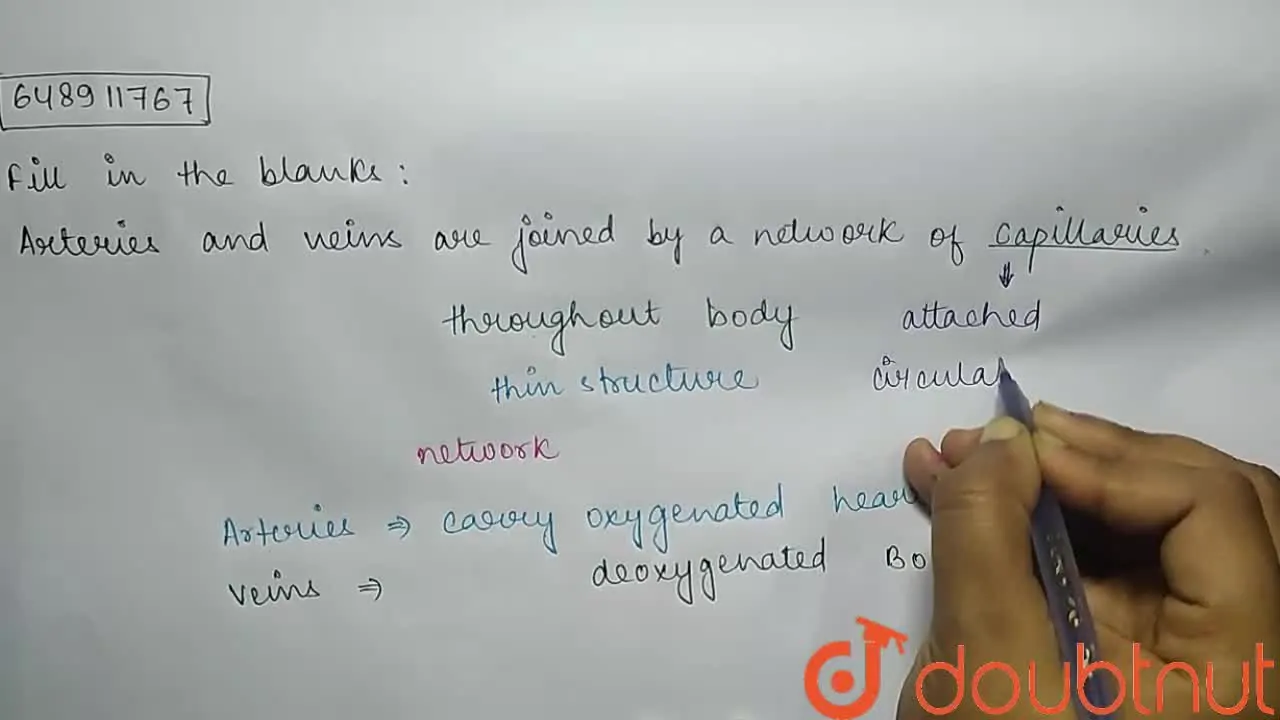 648911767
Fill in the blanks :
Arteries and veins are joined by a network of capillaries.
throughout body attached
thin structure circular
network
Arteries ⇒ carry oxygenated hear
veins ⇒ deoxygenated Bo
doubtnut